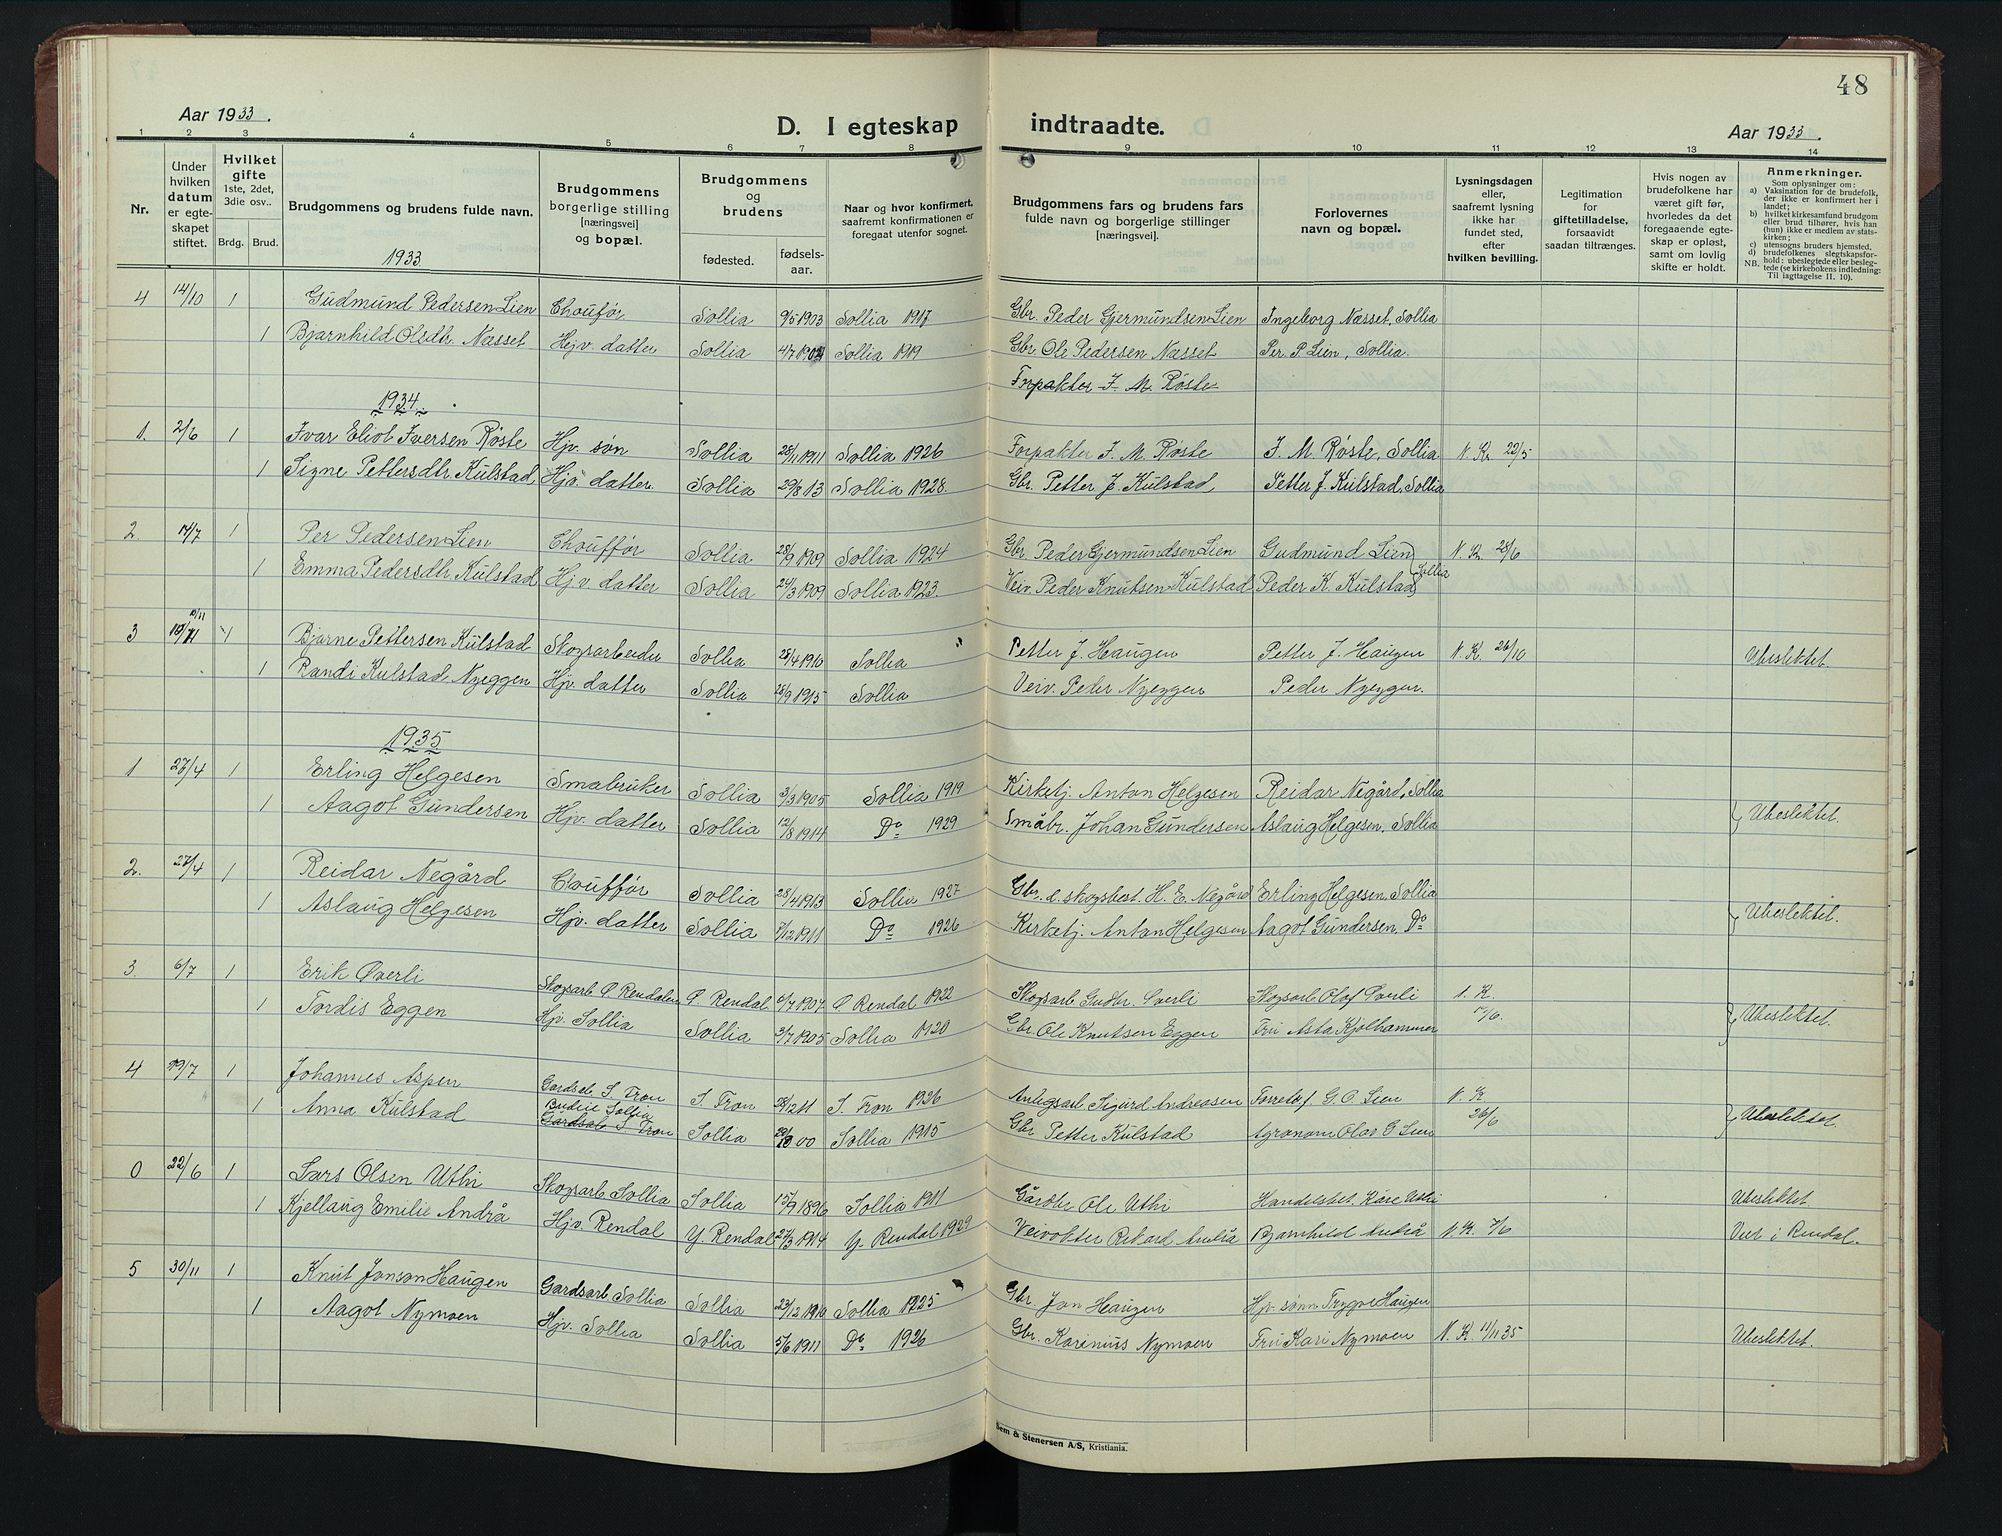 48
Aar 1933.
D. I egteskap indtraadte.
Aar 1933.
1 2 3 4 5 6 7 8 9 10 11 12 13 14
Nr.
Under hvilken datum er egteskapet stiftet.
Hvilket gifte 1ste, 2det, 3die osv..
Brdg. Brud.
Brudgommens og brudens fulde navn.
Brudgommens borgerlige stilling [næringsvei] og bopæl.
Brudgommens og brudens
fødested. fødselsaar.
Naar og hvor konfirmert, saafremt konfirmationen er foregaat utenfor sognet.
Brudgommens fars og brudens fars fulde navn og borgerlige stillinger [næringsvei].
Forlovernes navn og bopæl.
Lysningsdagen eller, saafremt lysning ikke har fundet sted, efter hvilken bevilling.
Legitimation for giftetilladelse, forsaavidt saadan tiltrænges.
Hvis nogen av brudefolkene har været gift før, hvorledes da det foregaaende egteskap er opløst, samt om lovlig skifte er holdt.
Anmerkninger.
Som oplysninger om:
a) Vaksination for de brudefolk, der ikke er konfirmert her i landet;
b) hvilket kirkesamfund brudgom eller brud tilhører, hvis han (hun) ikke er medlem av statskirken;
c) utensogns bruders hjemsted.
d) brudefolkenes slegtskapsforhold: ubeslegtede eller beslegtede (se kirkebokens indledning:
NB. Til iagttagelse II. 10).
1933
4 14/10 1 Gudmund Pedersen Lien Chouffør Sollia 9/5 1903 Sollia 1917 Gbr. Peder Gjermundsen Lien Ingeborg Næsset, Sollia
1 Bjarnhild Olsdtr. Næsset Hjv. datter Sollia 4/7 1904 Sollia 1919 Gbr. Ole Pedersen Næsset Per. P. Lien, Sollia.
Forpakter I. M. Røste
1934
1. 2/6 1 Ivar Eliot Iversen Røste Hjv. søn Sollia 28/11 1911 Sollia 1926 Forpakter I. M. Røste I. M. Røste, Sollia N. K. 22/5
1 Signe Pettersdtr Kulstad Hjv. datter. Sollia 29/8 13 Sollia 1928. Gbr. Petter J. Kulstad, Petter J. Kulstad, Sollia
2 14/7 1 Per Pedersen Lien Chouffør Sollia 28/9 1909 Sollia 1924 Gbr. Peder Gjermundsen Lien Gudmund Lien N. K. 28/6
1 Emma Pedersdtr Kulstad Hjv. datter Sollia 24/3 1909 Sollia 1923. Veiv. Peder Knutsen Kulstad Peder K. Kulstad Sollia
10/11
3 1 Bjarne Pettersen Kulstad Skogsarbeider Sollia 28/4 1910 Sollia " Petter J. Haugen Petter J. Haugen N. K. 26/10 Ubeslektet.
1 Randi Kulstad Nyeggen Hjv. datter Sollia 28/9 1915 Sollia Veiv. Peder Nyeggen Peder Nyeggen.
1935
1 27/4 1 Erling Helgesen Småbruker Sollia 3/3 1905 Sollia 1919 Kirketj. Anton Helgesen Reidar Negård, Sollia
1 Aagot Gundersen Hjv. datter Sollia 12/8 1914 Do 1929 Småbr. Johan Gundersen Aslaug Helgesen, Sollia Ubeslektet.
2. 27/4 1 Reidar Negård Chouffør Sollia 28/4 1913 Sollia 1927 Gbr. & skogsbest. H. E. Negård Erling Helgesen, Sollia
1 Aslaug Helgesen Hjv. datter Sollia 7/12 1911 Do 1926 Kirketj. Anton Helgesen Aagot Gundersen, Do Ubeslektet.
3. 6/7 1 Erik Øverli Skogsarb Ø. Rendalen Ø. Rendal 6/7 1907 Ø Rendal 1922 Skogsarb Øverli Skogsarb Olaf Øverli N. K.
1 Tordis Eggen Hjv. Sollia Sollia 3/7 1905 Sollia 1920 Gbr. Ole Knutsen Eggen Fru Asta Kjølhammer 17/6. Ubeslektet.
4 19/7 1 Johannes Aspen Gardsarb S. Fron S. Fron 12 11 S. Fron 1926 Anlegsarb Sigurd Andreasen G. O. Lien N. K.
1 Anna Kulstad Budeie Sollia Gardsarb S. Fron Sollia 00 Sollia 1915 Gbr. Petter Kulstad Agronom Olav G Lien 26/6 Ubeslektet.
0 22/6 1 Lars Olsen Uthi Skogsarb Sollia Sollia 15/9 1896 Sollia 1911 Ole Uthi Handelsbet. Kåre Uthi Ubeslektet.
1 Kjellaug Emilie Andrå Hjv. Rendal Y. Rendal 27/3 1914 Y. Rendal 1929 Veivokter Rikard Andrå Bjarnhild Andrå N. K. 7/6 Viet i Rendal.
5 30/11 1 Knut Jonson Haugen Gardsarb Sollia Sollia 23/12 1910 Sollia 1925 Gbr. Jon Haugen Hjv. sønn Trygve Haugen
1 Aagot Nymoen Hjv. Sollia Sollia 5/6 1911 Do 1926 Gbr. Karenius Nymoen Fru Kari Nymoen N. K. 11/11 35 Ubeslektet.
Sem & Stenersen A/S, Kristiania.